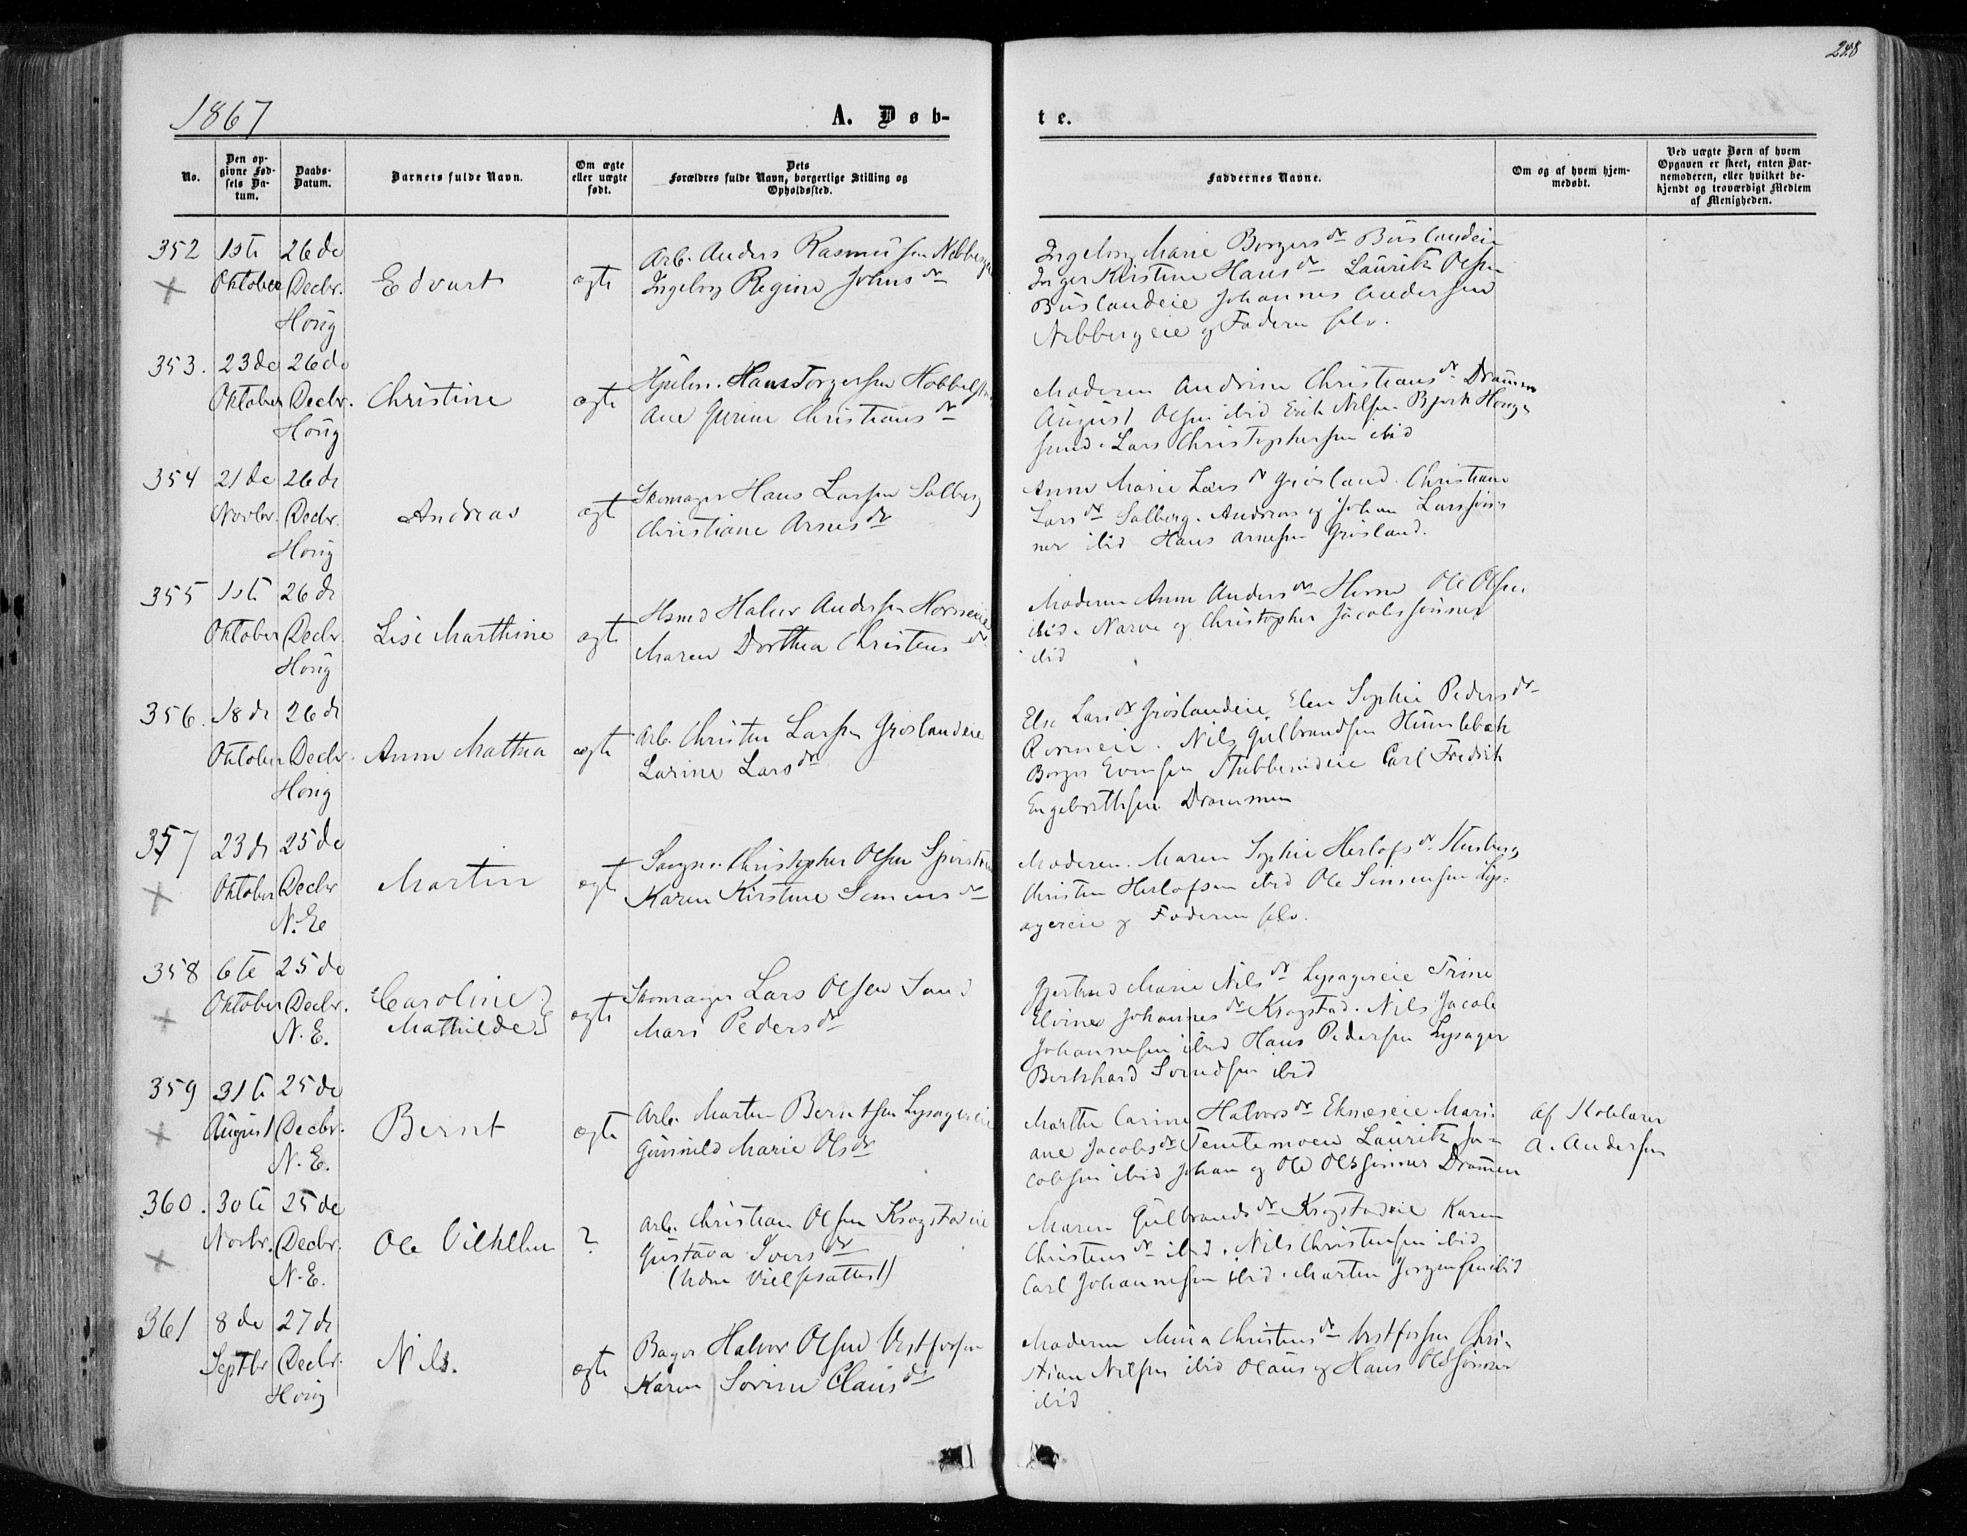 248
1867
A. Døb-
te.
No.
Den op-
givne Fød-
sels Da-
tum.
Daabs-
Datum.
Barnets fulde Navn.
Om ægte
eller uægte
født.
Dets
Forældres fulde Navn, borgerlige Stilling og
Opholdssted.
Faddernes Navne.
Om og af hvem hjem-
medøbt.
Ved uægte Børn af hvem
Opgaven er skeet, enten Bar-
nemoderen, eller hvilket be-
kjendt og troværdigt Medlem
af Menigheden.
352
1ste
Oktober
26de
Decbr.
Houg
Edvart
ægte
Arb. Anders Rasmussen
Ingeborg Regine Johns dr
Ingeborg Marie Borgers dr Buslandeie
Inger Kirstine Hans dr Lauritz Olsen
Buslandeie Johannes Andersen
Nebbergeie og Faderen selv.
353.
23de
Oktober
26de
Decbr.
Houg
Christine
ægte
Hans Torgersen
Ane Gurine Christians dr
Moderen Andrine Christians dr Drammen
August Olsen ibid Erik Nilsen Bjerk Hougs-
sund. Lars Christophersen ibid
354
21de
Novbr.
26de
Decbr.
Houg
Andreas
ægte
Skomager Hans Larsen Solberg
Christiane Arnes dr
Anne Marie Lars dr Grøsland. Christiane
Lars dr Solberg. Andreas og Johan Larssøn-
ner ibid Hans Arnesen Grøsland.
355
1ste
Oktober
26de
Decbr.
Houg
Lise Marthine
ægte
Hsmd Halvor Andersen Horneeie
Maren Dorthea Christens dr
Moderen Anne Anders dr Horne Ole Olsen
ibid. Narve og Christopher Jacobssønner
ibid
356.
18de
Oktober
26de
Decbr.
Houg
Anne Mathea
ægte
Arb. Christen Larsen Grøslandeie
Larine Lars dr
Else Lars dr Grøslandeie. Elen Sophie Peders dr
Nils Gulbrandsen Humlebæk
Borger Evensen Stubberudeie Carl Fredrik
Engebrethsen Drammen
357
23de
Oktober
25de
Decbr
N. E.
Martin
ægte
Christopher Olsen
Karen Kirstine Simens dr
Moderen. Maren Sophie Herlofs dr
Christen Herlofsen ibid Ole Simensen Lys-
agereie og Faderen selv.
358
6te
Oktober
25de
Decbr.
N. E.
Caroline
Mathilde
ægte
Skomager Lars Olsen Sand
Mari Peders dr
Gjertrud Marie Nils dr Lysagereie Trine
Elvine Johannes dr Krogstad. Nils Jacob
Johannesen ibid Hans Pedersen Lysager
Berkhard Svendsen ibid
359
31te
August
25de
Decbr.
N. E.
Bernt
ægte
Arb. Martin Berntsen Lysagereie
Gunnild Marie Ols dr
Marthe Carine Halvors dr Eknæseie Mari-
ane Jacobs dr Tentemoen Lauritz Ja-
cobsen ibid Johan og Ole Olssønner Drammen
Af Kirkesanger
A. Andersen
360.
30te
Novbr.
25de
Decbr.
N. E.
Ole Vilhelm
?
Arb. Christian Olsen Krogstadeie
Gustava Ivers dr
(Uden Vielsesattest)
Maren Gulbrands dr Krogstadeie Karen
Christens dr ibid. Nils Christensen ibid
Carl Johannesen ibid. Martin Jørgensen ibid
361
8de
Septbr
27de
Decbr.
Houg
Nils.
ægte
Bager Halvor Olsen Vestfossen
Karen Sorine Claus dr
Moderen Mina Christens dr Vestfossen Chri-
stian Nilsen ibid Olaus og Hans Olssønner
ibid